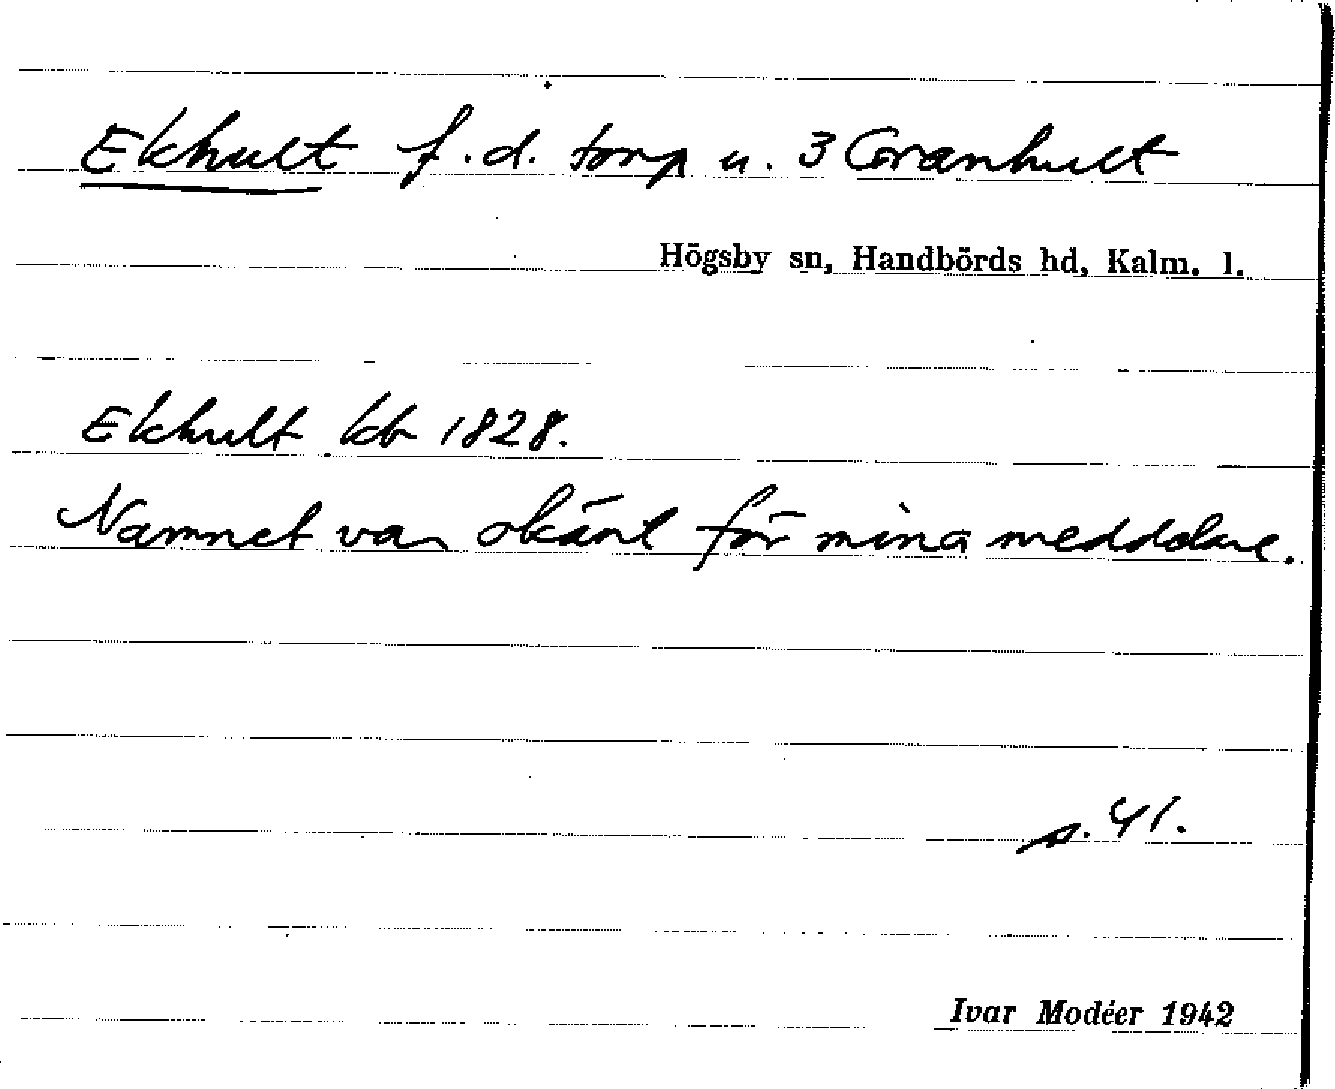 Ekhult f.d. torp u. 3 Granhult
Högsby sn, Handbörds hd, Kalm. l.
Ekhult kb 1828.
Namnet var okänt för mina meddelare.
s. 41.
Ivar Modéer 1942